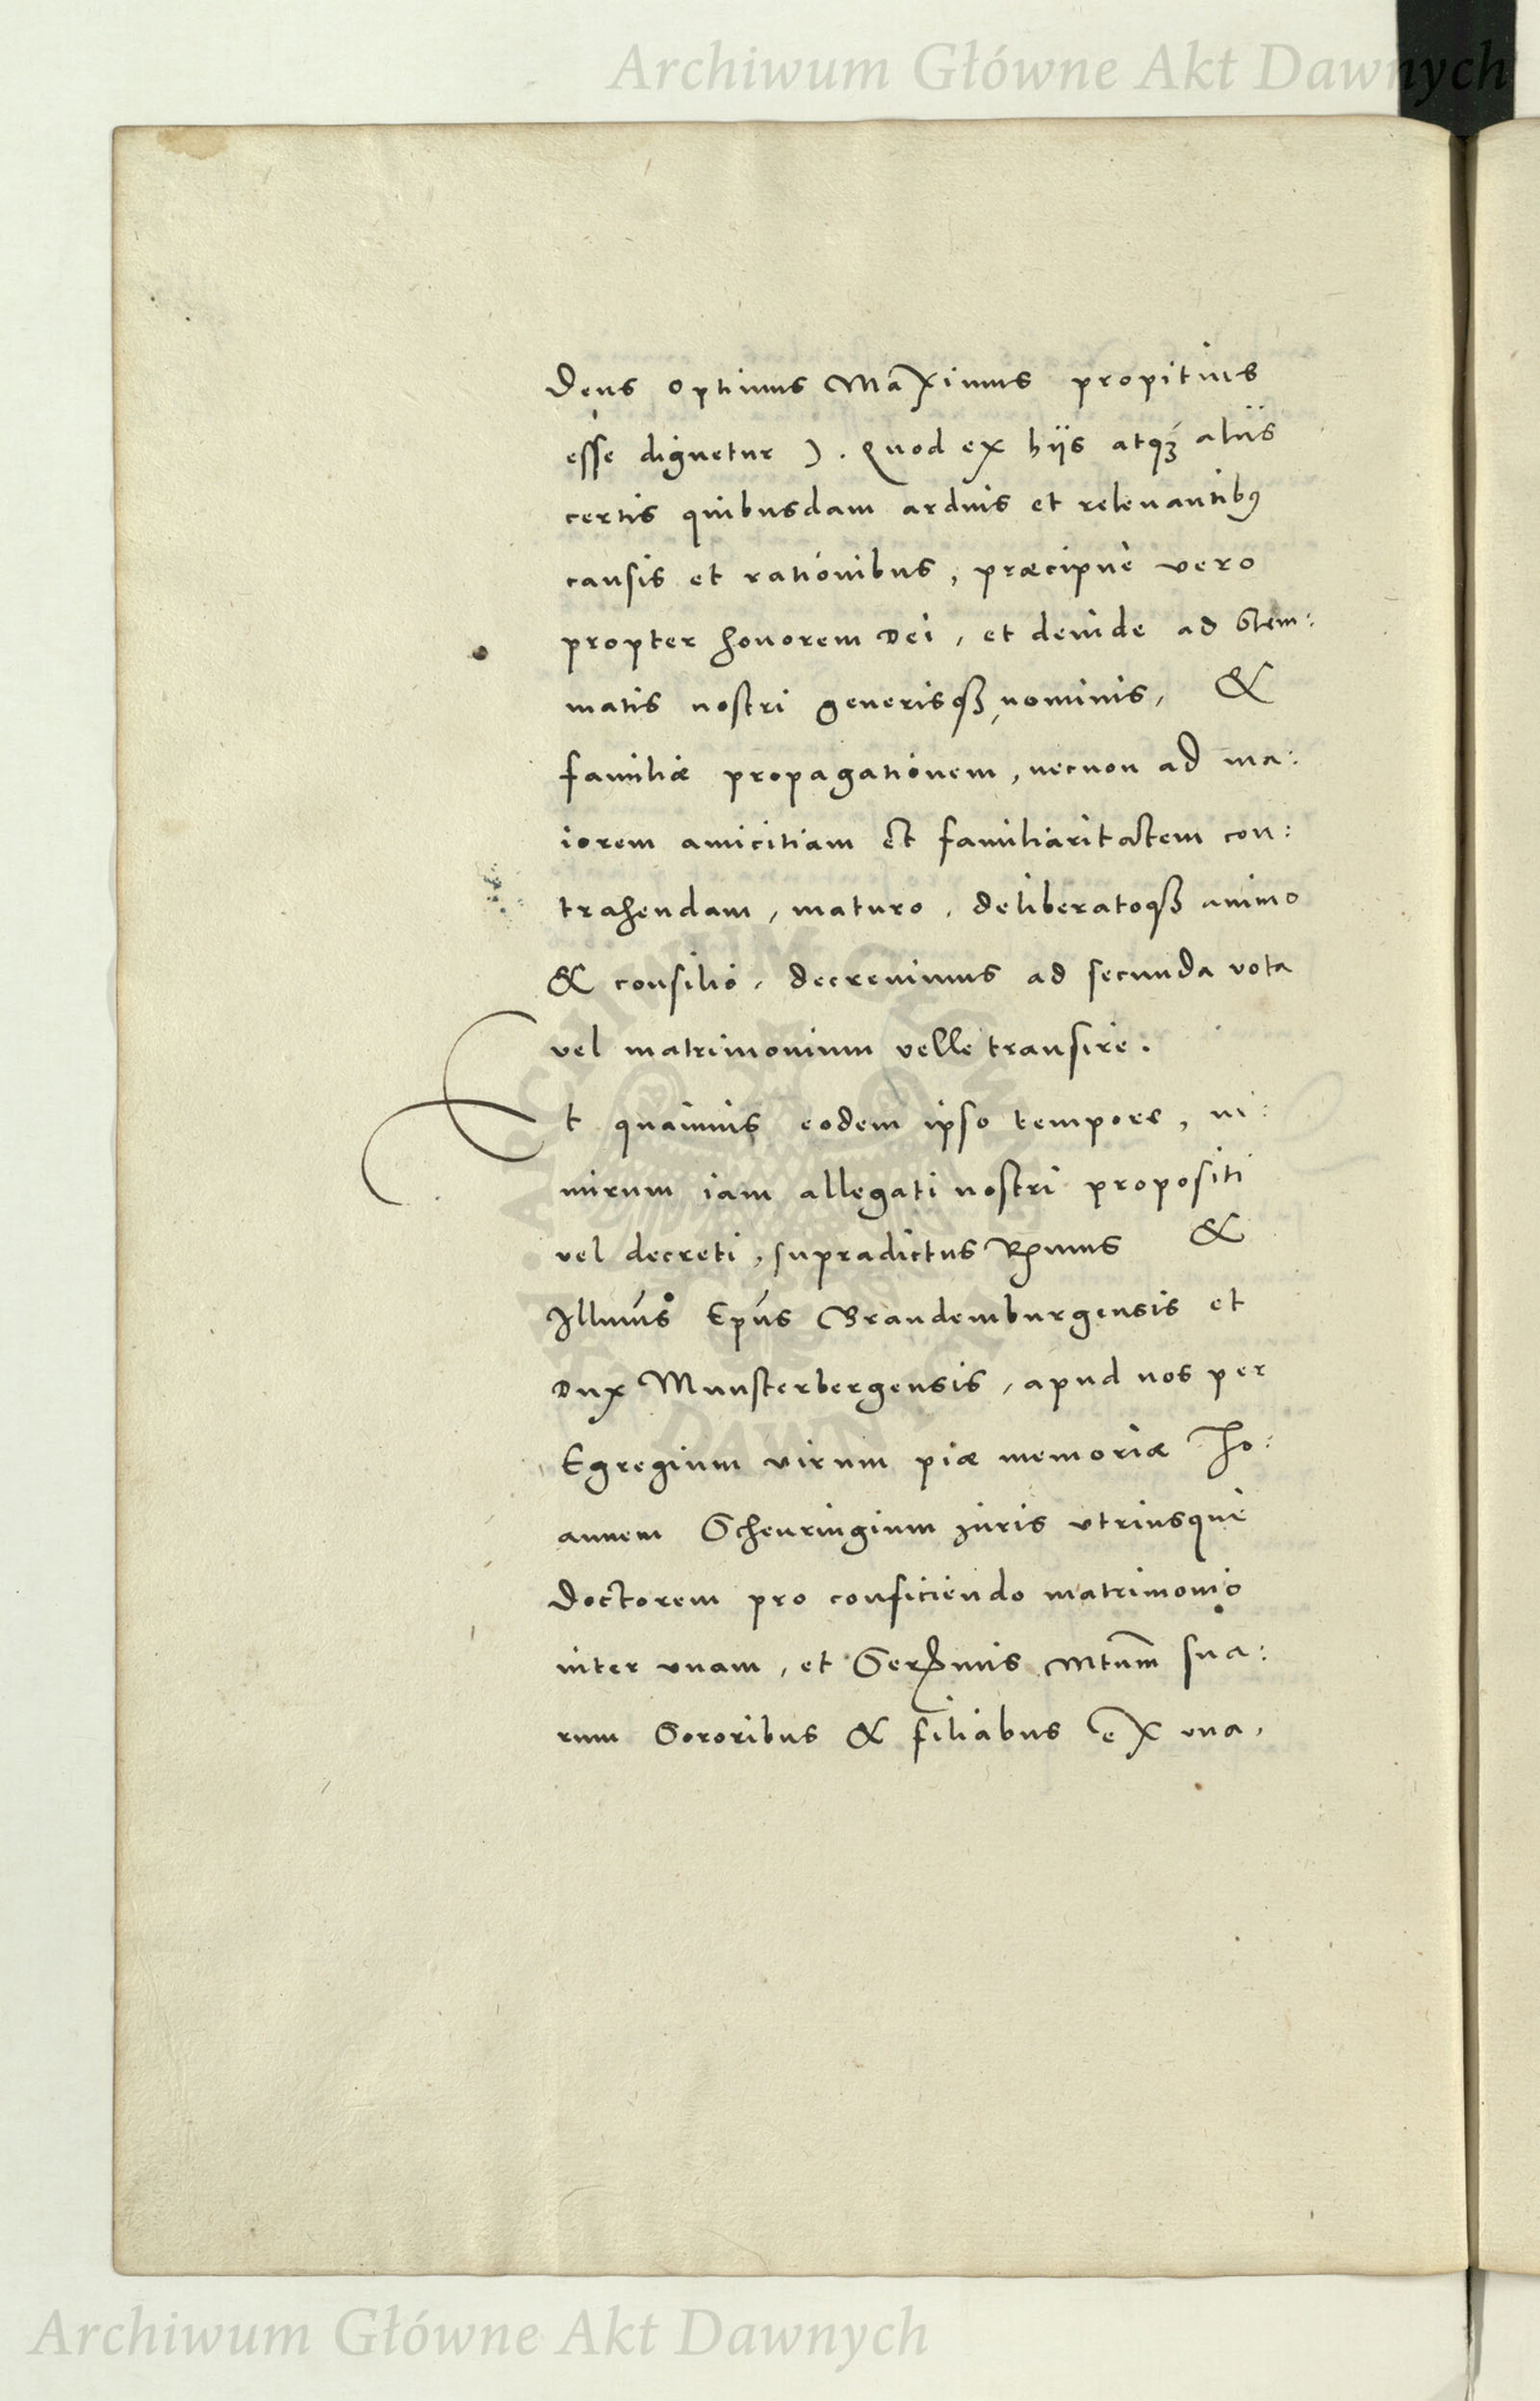 Archiwum Główne Akt Dawnych
Deus Optimus Maximus propitius
esse dignetur ). Quod ex hijs atqꝫ alijs
certis quibusdam arduis et releuantibꝰ
causis et rationibus, præcipuè vero
propter honorem Dei, et deinde ad Stem:
matis nostri generisqꝫ, nominis, &
familiæ propagationem, necnon ad ma:
iorem amicitiam et familiaritatem con:
trahendam, maturo, deliberatoqꝫ animo
& consilio, decreuimus ad secunda vota
vel matrimonium velle transire.
Et quamuis eodem ipso tempore, ni:
mirum iam allegati nostri propositi
vel decreti, supradictus Rꝑmus &
Illmus Epus Brandemburgensis et
Dux Munsterbergensis, apud nos per
Egregium virum piæ memoriæ Jo:
annem Scheuringium juris vtriusque
Doctorem pro conficiendo matrimonio
inter vnam, et Serꝑmis Mtum sua:
rum Sororibus & filiabus ex vna,
ARCHIWUM GŁÓWNE AKT DAWNYCH
Archiwum Główne Akt Dawnych